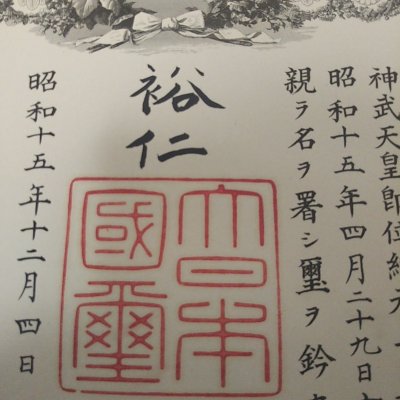 神武天皇即位紀元
昭和十五年四月二十九日
親ラ名ヲ署シ璽ヲ鈐
裕仁
大日本
國璽
昭和十五年十二月四日